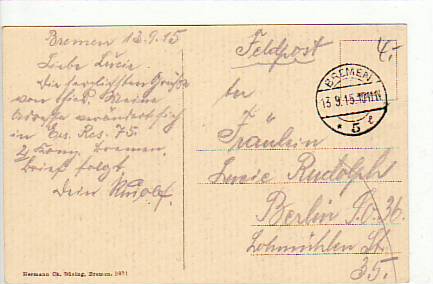 Bremen 12.9.15
Liebe Lucie.
Die herzlichsten Grüße
von hier. Meine
Adresse verändert sich
in Ers. Res. 75.
2 Komp. Bremen.
Brief folgt.
Dein Rudolf.
Hermann Ch. Büsing, Bremen.
Feldpost
4.-
BREMEN
13.9.15.
* 5 e
Fräulein
Lucie Rudolph
Berlin S.O. 36.
Lohmühlen St.
35.